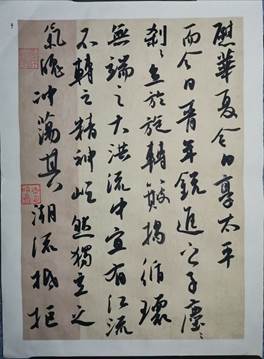 慰華夏今日享太平
而今日晋年銳進之子塵
剎旋轉鼓揭循環
無端之大洪流中宣有江流
不轉之精神屹然獨立之
氣冲蕩其湖流抵拒